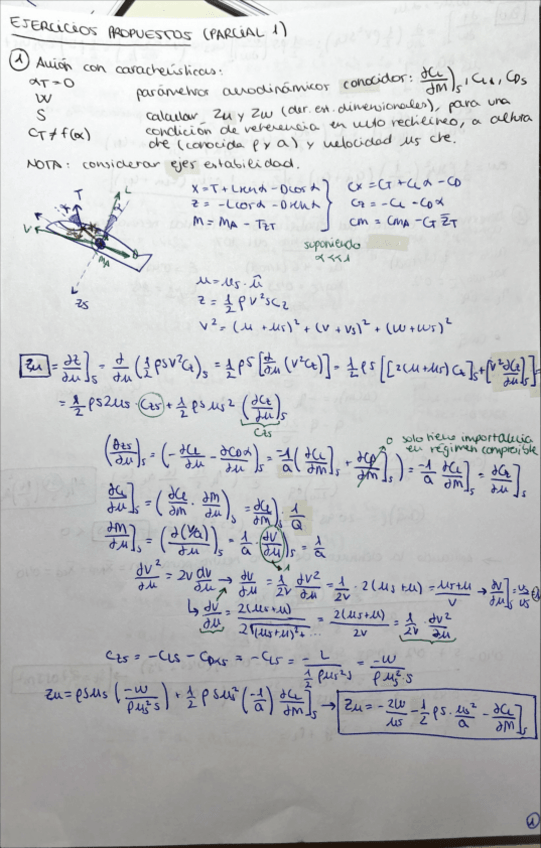 EJERCICIOS PROPUESTOS (PARCIAL 1)
① Avión con características:
αT = 0
W
S
CT ≠ f(α)
parámetros aerodinámicos conocidos: ∂CL/∂M)s, CLs, CDs
calcular Zu y Zw (der. est. dimensionales), para una
condición de referencia en vuelo rectilíneo, a altura
cte (conocida ρ y a) y velocidad us cte.
NOTA: considerar ejes estabilidad.
X = T + L sen α - D cos α
Z = -L cos α - D sen α
M = MA - T zT
CX = CT + CL α - CD
CZ = -CL - CD α
Cm = CmA - CT z̄T
suponiendo
α << 1
T
L
V
MA
D
ZS
u = us · û
Z = 1/2 ρ V² S CZ
V² = (u + us)² + (v + vs)² + (w + ws)²
Zu = ∂Z/∂u]s = ∂/∂u (1/2 ρ S V² CZ)s = 1/2 ρ S [∂/∂u (V² CZ)] = 1/2 ρ S [[2(u + us) CZ]s + [V² ∂CZ/∂u]s]
= 1/2 ρ S 2us · CZs + 1/2 ρ S us² (∂CZ/∂u)s
CZs
(∂CZs/∂u)s = (-∂CL/∂u - ∂CD α/∂u)s = -1/a (∂CL/∂M]s + ∂CD/∂M]s) = -1/a ∂CL/∂M]s = ∂CZ/∂u]s
0 solo tiene importancia
en régimen compresible
∂CL/∂u]s = (∂CL/∂M · ∂M/∂u)s = ∂CL/∂M)s 1/a
∂M/∂u]s = (∂(V/a)/∂u)s = 1/a · (∂V/∂u)s = 1/a
1
∂V²/∂u = 2V ∂V/∂u → ∂V/∂u = 1/2V ∂V²/∂u = 1/2V · 2(us + u) = us + u/V → ∂V/∂u]s = us/us = 1
↳ ∂V/∂u = 2(us + u)/2√(us + u)² + ... = 2(us + u)/2V = 1/2V · ∂V²/∂u
CZs = -CLs - CDs αs = -CLs = -L/(1/2 ρ us² S) = -W/(1/2 ρ us² S)
Zu = ρ S us (-W/(1/2 ρ us² S)) + 1/2 ρ S us² (-1/a) ∂CL/∂M]s → Zu = -2W/us - 1/2 ρ S · us²/a - ∂CL/∂M]s
①